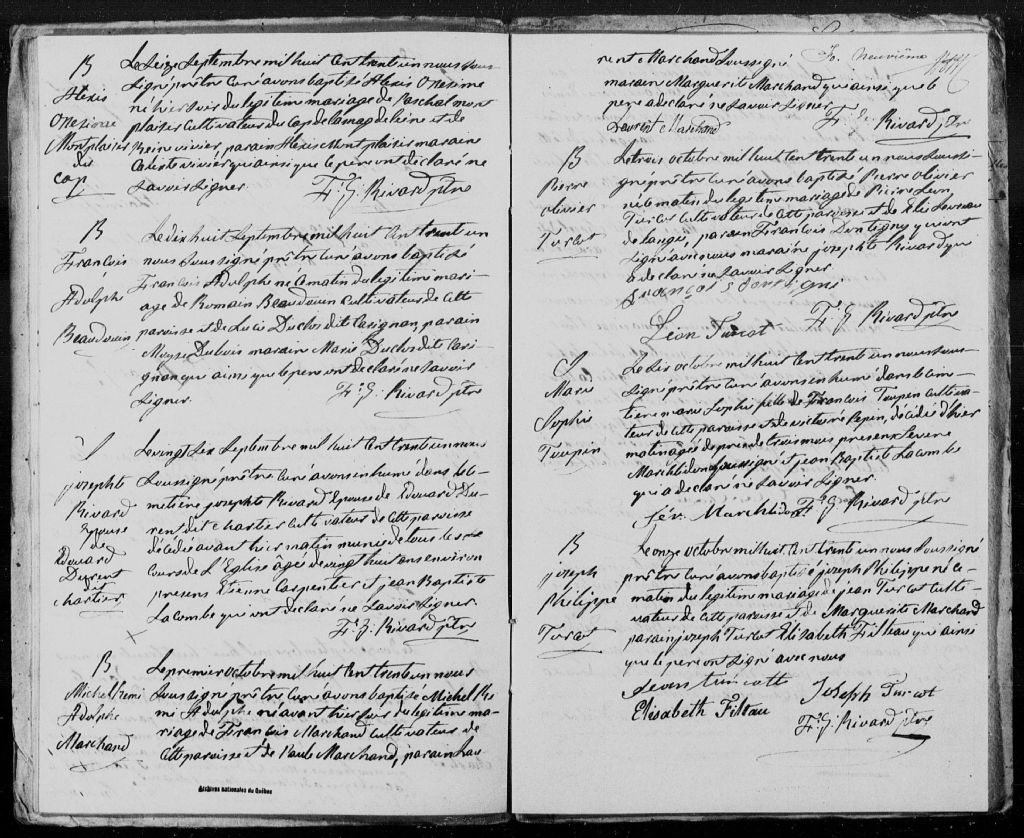 B
Alexis
Onesime
Montplaisir
du
Cap
Le Seize Septembre mil huit cent trente un nous sous
signé prêtre curé avons baptisé Alexis Onesime
né hier soir du legitime mariage de Paschal mont
plaisir Cultivateur du Cap de la magdeleine et de
Reine vivier, parain Alexis Montplaisir maraine
Caliste vivier qui ainsi que le pere ont déclaré ne
savoir signer.
Fr. G. Rivard ptre
B
François
Adolphe
Beaudouin
Le dix huit Septembre mil huit cent trente un
nous soussigné prêtre curé avons baptisé
François Adolphe né ce matin du legitime mari-
age de Romain Beaudouin Cultivateur de cette
paroisse et de Lucie Duclos dit Carignan, parain
Moyse Dubois maraine Marie Duclos dit Cari-
gnan qui ainsi que le pere ont déclaré ne savoir
signer.
Fr. G. Rivard ptre
S
josephte
Rivard
Epouse
de
Edouard
Durent
dit
chartier
Le vingt Six Septembre mil huit cent trente un nous
soussigné prêtre curé avons inhumé dans le ci-
metière josephte Rivard Epouse de Edouard Du-
rent dit chartier cultivateur de cette paroisse
décédée avant hier matin munie de tous les se
cours de L'Eglise agée de vingt huit ans environ
presens Etienne Carpentier et jean Baptiste
Lacombe qui ont déclaré ne savoir signer.
Fr. G. Rivard ptre
B
Michel Remi
Adolphe
Marchand
Le premier octobre mil huit cent trente un nous
soussigné prêtre curé avons baptisé Michel Re
mi Adolphe né avant hier soir du legitime ma-
riage de François Marchand cultivateur de
cette paroisse et de Paule Marchand, parain Lau
Archives nationales du Québec
Fo. neuvième
rent Marchand soussigné
maraine Marguerite Marchand qui ainsi que le
pere a déclaré ne savoir signer
Laurent Marchand
Fr. G. Rivard ptre
B
Pierre
olivier
Turcot
Le trois octobre mil huit cent trente un nous soussi-
gné prêtre curé avons baptisé Pierre Olivier
né ce matin du legitime mariage de Pierre Leon
Turcot cultivateur de cette paroisse et de
parain François Dontigny qui ont
signé avec nous maraine josephte Rivard qui
a déclaré ne savoir signer.
François dontigni
Léon Turcot
Fr. G. Rivard ptre
S
Marie
Sophie
Toupin
Le Six octobre mil huit cent trente un nous sous-
signé prêtre curé avons inhumé dans le cime-
tière marie Sophie fille de François Toupin cultiva-
teur de cette paroisse et de victoire Pepin, décédée d'hier
matin agée de près de trois mois presens Severe
Marchildon soussigné et jean Baptiste Lacombe
qui a déclaré ne savoir signer.
Sév. Marchildon
Fr. G. Rivard ptre
B
joseph
Philippe
Turcot
Le onze octobre mil huit cent trente un nous soussigné
prêtre curé avons baptisé joseph Philippe né ce
matin du legitime mariage de jean Turcot culti-
vateur de cette paroisse et de Marguerite Marchand
parain joseph Turcot Elizabeth Filteau qui ainsi
que le pere ont signé avec nous
Joseph Turcot
Elisabeth Filtau
Fr. G. Rivard ptre